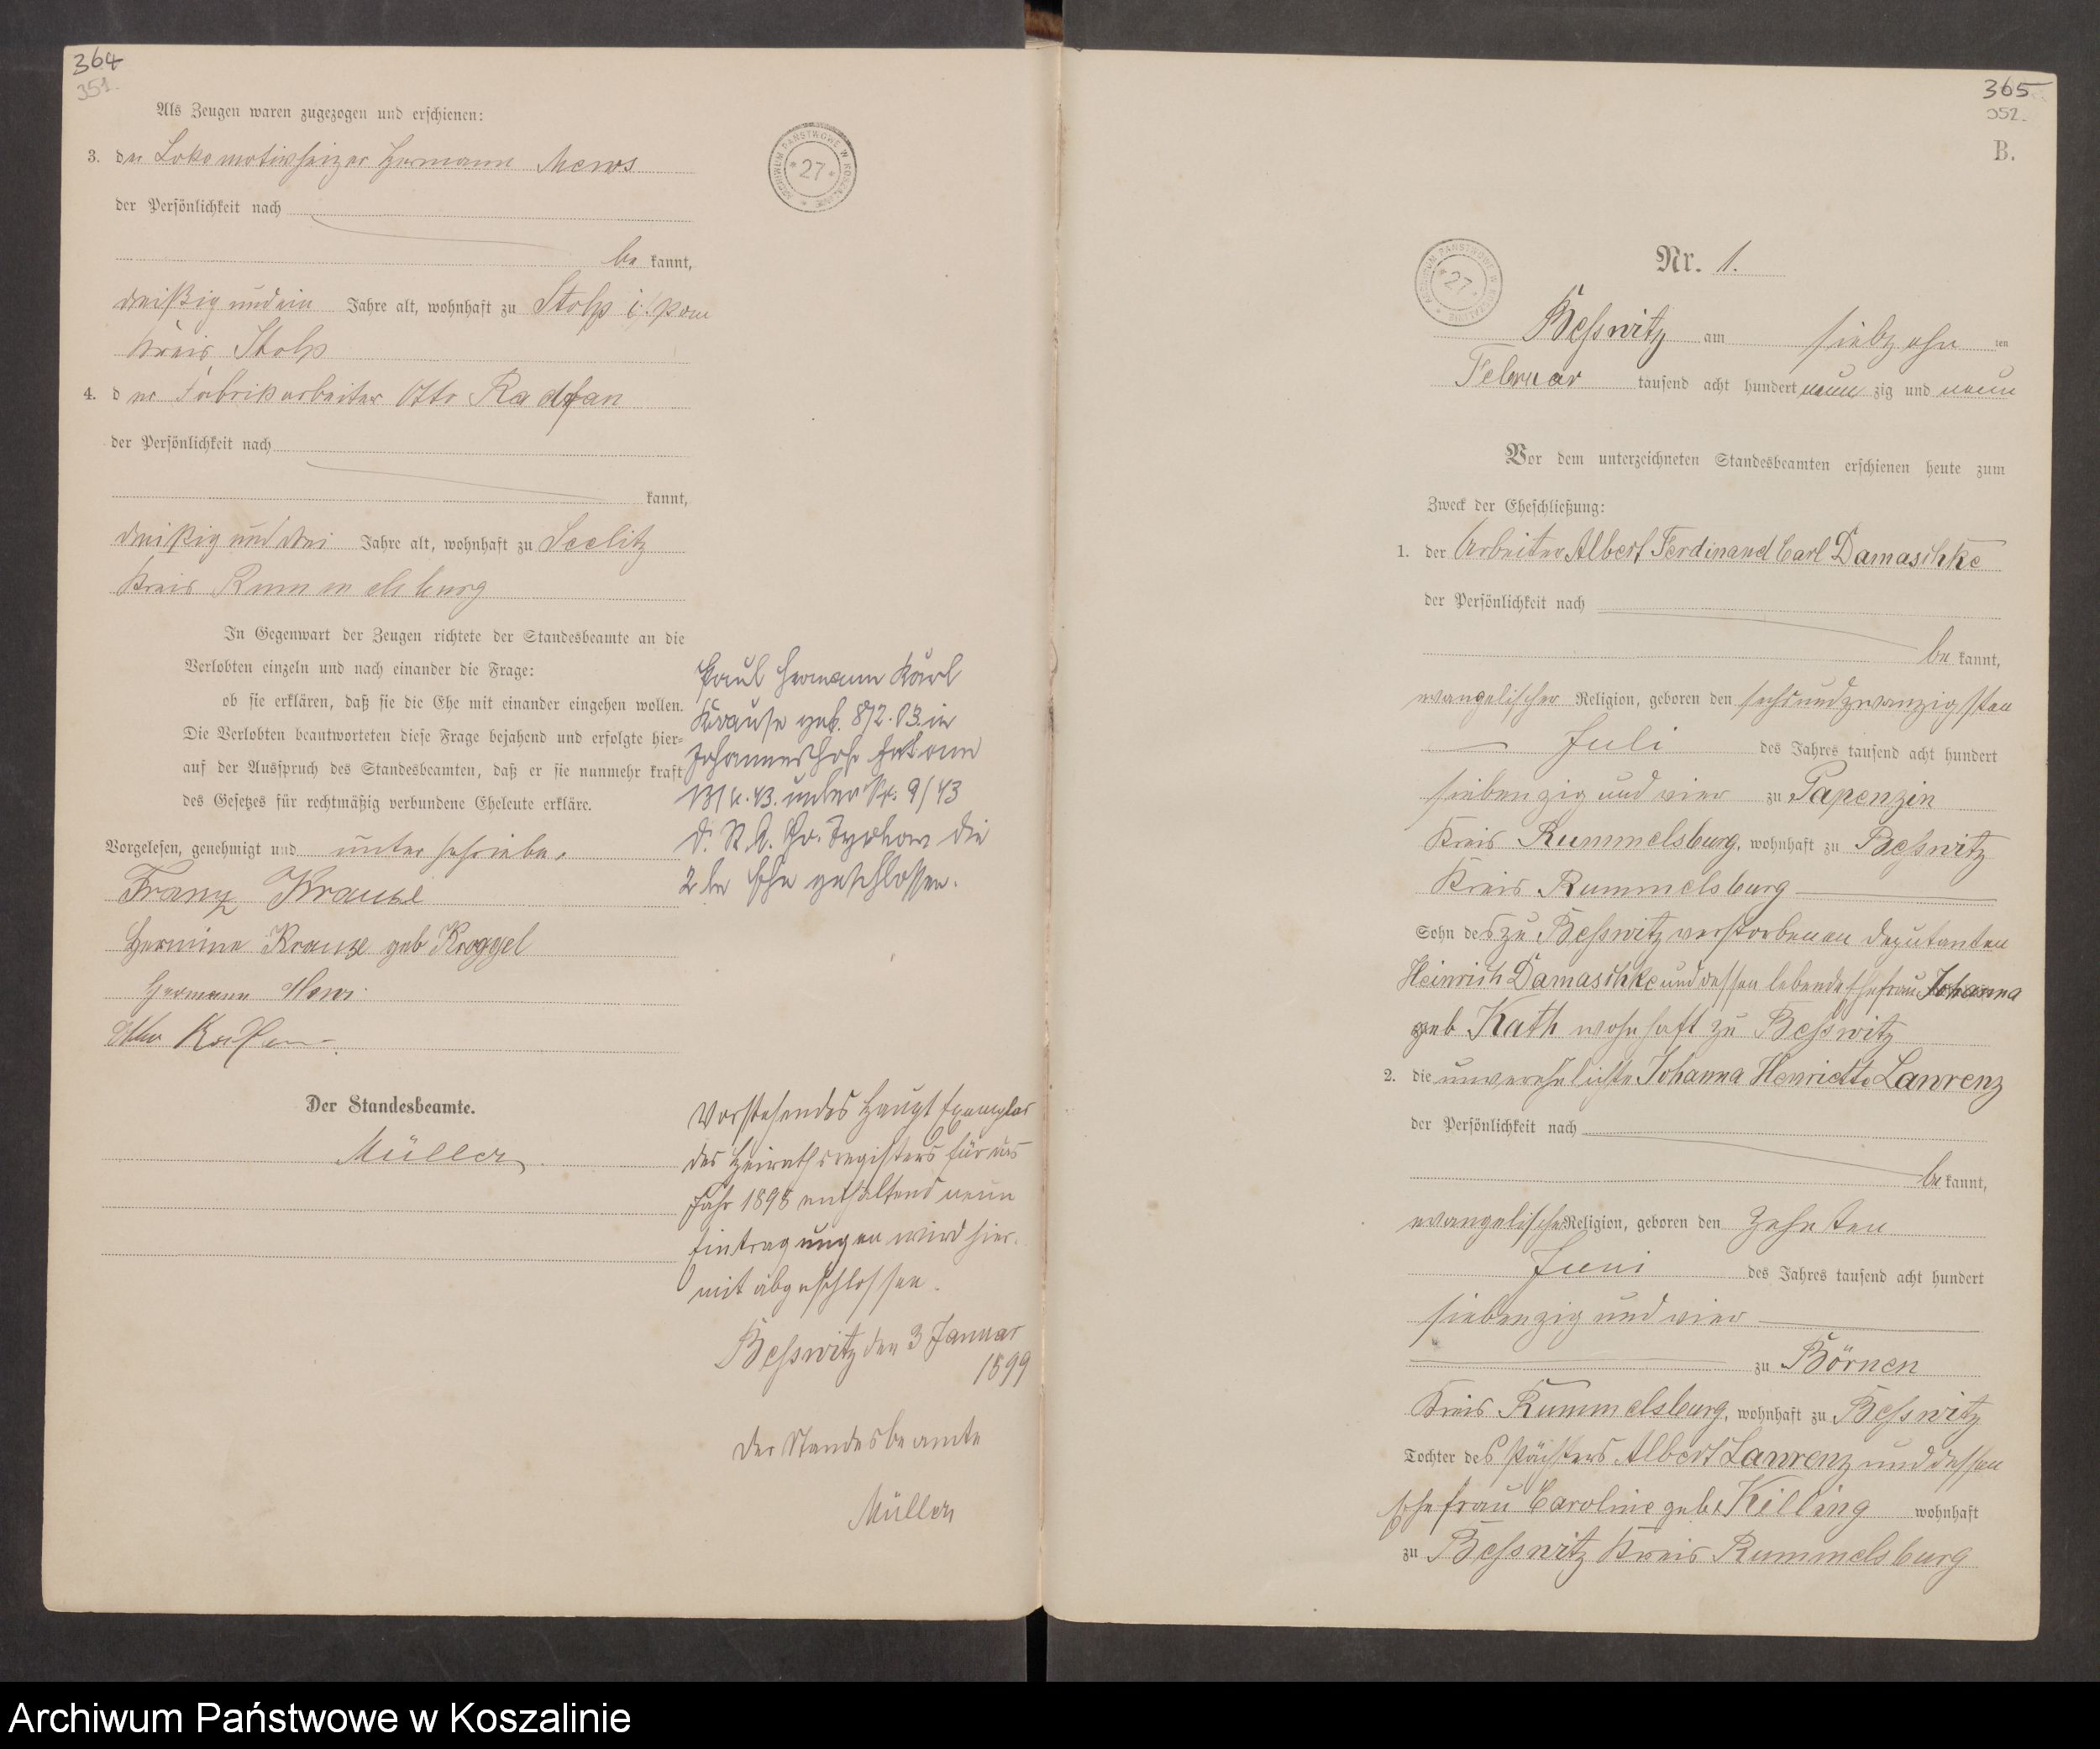 364
351.
Als Zeugen waren zugezogen und erschienen:
3. der Lokomotivheizer Hermann Mews
der Persönlichkeit nach
be kannt,
dreißig und ein Jahre alt, wohnhaft zu Stolp i./Pom
Kreis Stolp
4. der Fabrikarbeiter Otto
der Persönlichkeit nach
kannt,
dreißig und drei Jahre alt, wohnhaft zu Seelitz
Kreis Rummelsburg
In Gegenwart der Zeugen richtete der Standesbeamte an die
Verlobten einzeln und nach einander die Frage:
ob sie erklären, daß sie die Ehe mit einander eingehen wollen.
Die Verlobten beantworteten diese Frage bejahend und erfolgte hier-
auf der Ausspruch des Standesbeamten, daß er sie nunmehr kraft
des Gesetzes für rechtmäßig verbundene Eheleute erkläre.
Vorgelesen, genehmigt und unterschrieben
Franz Krause
Hermine Krause geb Kroggel
Hermann Mews
Otto
Der Standesbeamte.
Müller
Paul Hermann Karl
Krause geb. 8/2.03 in
Johanneshof hat am
13/4.43. unter Nr. 9/43
d. St. A. Gr. die
2te Ehe geschlossen.
Vorstehendes Haupt Exemplar
des Heirathsregisters für das
Jahr 1898 enthaltend neun
Eintragungen wird hier-
mit abgeschlossen.
Beßwitz den 3 Januar
1899
Der Standesbeamte
Müller
ARCHIWUM PAŃSTWOWE W KOSZALINIE * 27 *
365
352.
B.
ARCHIWUM PAŃSTWOWE W KOSZALINIE * 27 *
Nr. 1.
Beßwitz am siebzehn ten
Februar tausend acht hundert neun zig und neun
Vor dem unterzeichneten Standesbeamten erschienen heute zum
Zweck der Eheschließung:
1. der Arbeiter Albert Ferdinand Carl Damaschke
der Persönlichkeit nach
be kannt,
evangelischer Religion, geboren den sechsundzwanzigsten
Juli des Jahres tausend acht hundert
siebenzig und vier zu Papenzin
Kreis Rummelsburg, wohnhaft zu Beßwitz
Kreis Rummelsburg
Sohn des zu Beßwitz verstorbenen Deputanten
Heinrich Damaschke und dessen lebende Ehefrau Johanna
geb Kath wohnhaft zu Beßwitz
2. die unverehelichte Johanna Henriette Lawrenz
der Persönlichkeit nach
be kannt,
evangelischer Religion, geboren den zehnten
Juni des Jahres tausend acht hundert
siebenzig und vier
zu Börnen
Kreis Rummelsburg, wohnhaft zu Beßwitz
Tochter des Pächters Albert Lawrenz und dessen
Ehefrau Caroline geb. Killing wohnhaft
zu Beßwitz Kreis Rummelsburg
Archiwum Państwowe w Koszalinie